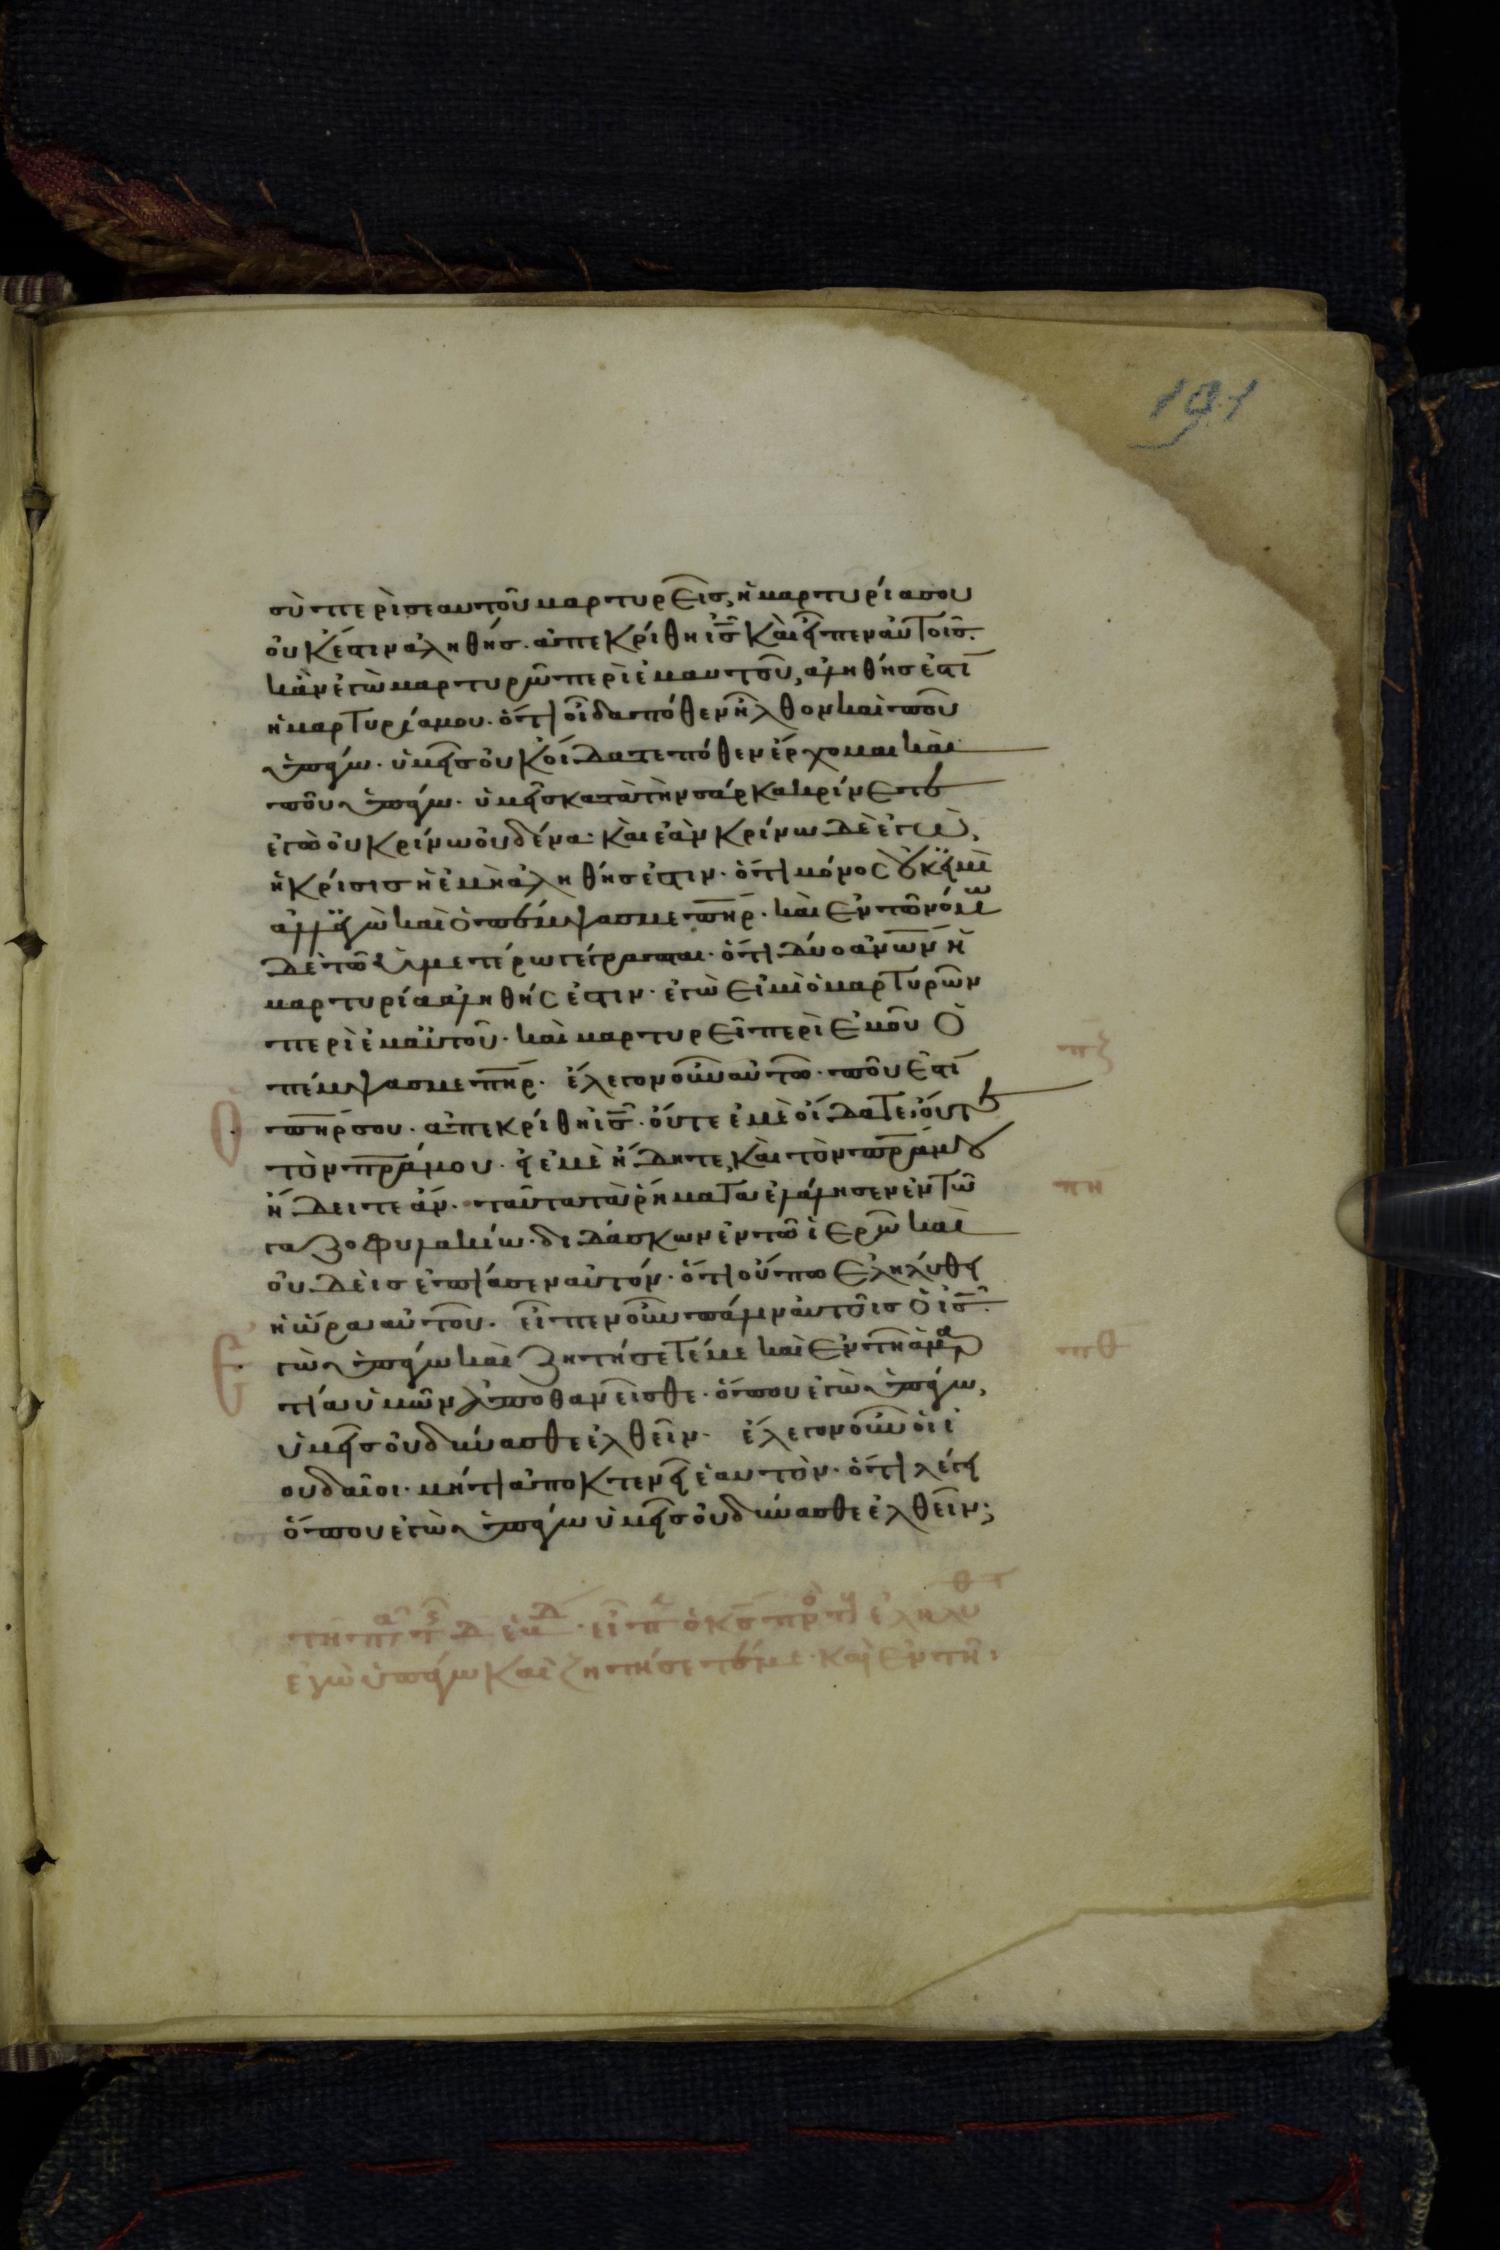 191
σὺ περὶ σεαυτοῦ μαρτυρεῖς, ἡ μαρτυρία σου
οὐκ ἔστιν ἀληθής. ἀπεκρίθη ἰς̅ καὶ εἶπεν αὐτοῖς.
κἂν ἐγὼ μαρτυρῶ περὶ ἐμαυτοῦ, ἀληθής ἐστι
ἡ μαρτυρία μου. ὅτι οἶδα πόθεν ἦλθον καὶ ποῦ
ὑπάγω. ὑμεῖς οὐκ οἴδατε πόθεν ἔρχομαι καὶ
ποῦ ὑπάγω. ὑμεῖς κατὰ τὴν σάρκα κρίνετε
ἐγὼ οὐ κρίνω οὐδένα. καὶ ἐὰν κρίνω δὲ ἐγὼ,
ἡ κρίσις ἡ ἐμὴ ἀληθής ἐστιν. ὅτι μόνος οὐκ εἰμὶ
ἀλλ' ἐγὼ καὶ ὁ πέμψας με πη̅ρ. καὶ ἐν τῶ νόμω
δὲ τῶ ὑμετέρω γέγραπται. ὅτι δύο ἀνω̅ν ἡ
μαρτυρία ἀληθής ἐστιν. ἐγὼ εἰμὶ ὁ μαρτυρῶν
περὶ ἐμαυτοῦ. καὶ μαρτυρεῖ περὶ ἐμοῦ ὁ
πέμψας με πη̅ρ. ἔλεγον οὖν αὐτῶ. ποῦ ἐστι πζ
ὁ πη̅ρ σου. ἀπεκρίθη ἰς̅. οὔτε ἐμὲ οἴδατε, οὔτε
τὸν πρ̅α μου. εἰ ἐμὲ ἤδητε, καὶ τὸν πρ̅α μου
ἤδειτε ἄν. ταῦτα τὰ ῥήματα ἐλάλησεν ἐν τῶ πη
γαζοφυλακίω. διδάσκων ἐν τῶ ἱερῶ καὶ
οὐδεὶς ἐπίασεν αὐτόν. ὅτι οὔπω ἐληλύθει
ἡ ὥρα αὐτοῦ. εἶπεν οὖν πάλιν αὐτοῖς ὁ ἰς̅.
ἐγὼ ὑπάγω καὶ ζητήσετέ με καὶ ἐν τῆ ἁμαρ πθ
τία ὑμῶν ἀποθανεῖσθε. ὅπου ἐγὼ ὑπάγω,
ὑμεῖς οὐ δύνασθε ἐλθεῖν. ἔλεγον οὖν οἱ ἰ
ουδαῖοι. μήτι ἀποκτενεῖ ἑαυτὸν. ὅτι λέγει
ὅπου ἐγὼ ὑπάγω ὑμεῖς οὐ δύνασθε ἐλθεῖν;
εἶπ ὁ κς̅ πρ
ἐγὼ ὑπάγω καὶ ζητήσετέ με. καὶ ἐν τῆ